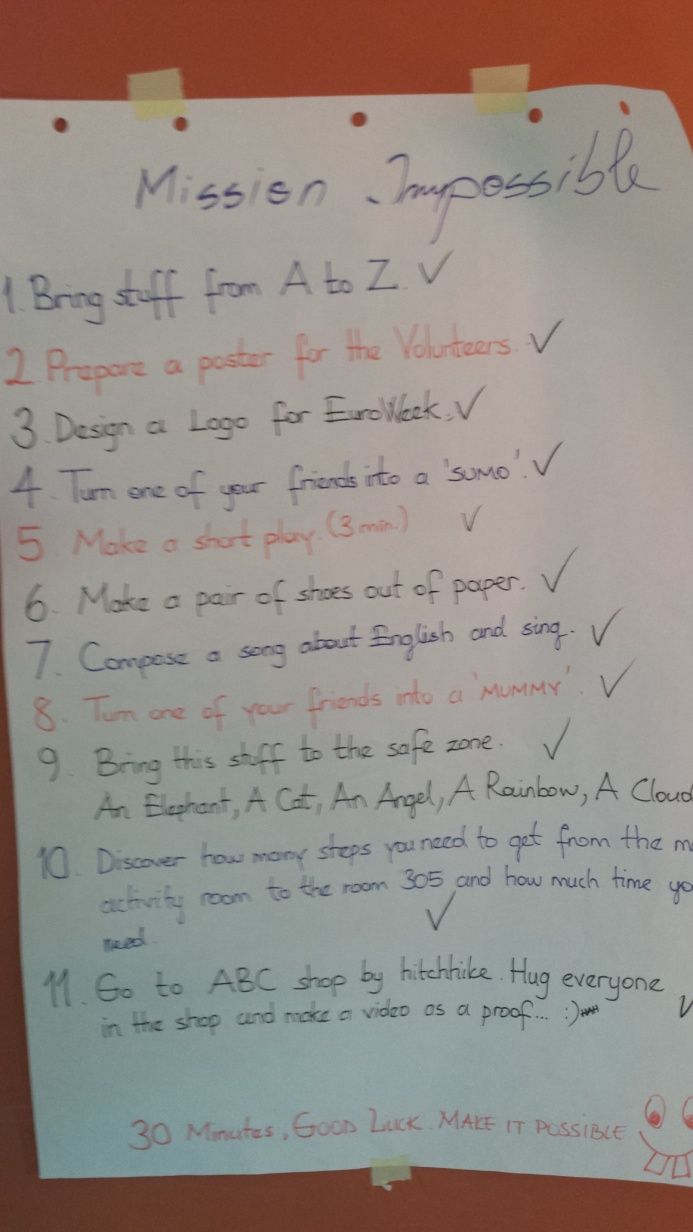 Mission Impossible
1. Bring stuff from A to Z. ✓
2. Prepare a poster for the Volunteers. ✓
3. Design a Logo for EuroWeek. ✓
4. Turn one of your friends into a 'SUMO'. ✓
5. Make a short play. (3 min.) ✓
6. Make a pair of shoes out of paper. ✓
7. Compose a song about English and sing. ✓
8. Turn one of your friends into a 'MUMMY'. ✓
9. Bring this stuff to the safe zone. ✓
An Elephant, A Cat, An Angel, A Rainbow, A Cloud
10. Discover how many steps you need to get from the
activity room to the room 305 and how much time
need. ✓
11. Go to ABC shop by hitchhike. Hug everyone
in the shop and make a video as a proof... :) ✓
30 Minutes, Good Luck. MAKE IT POSSIBLE